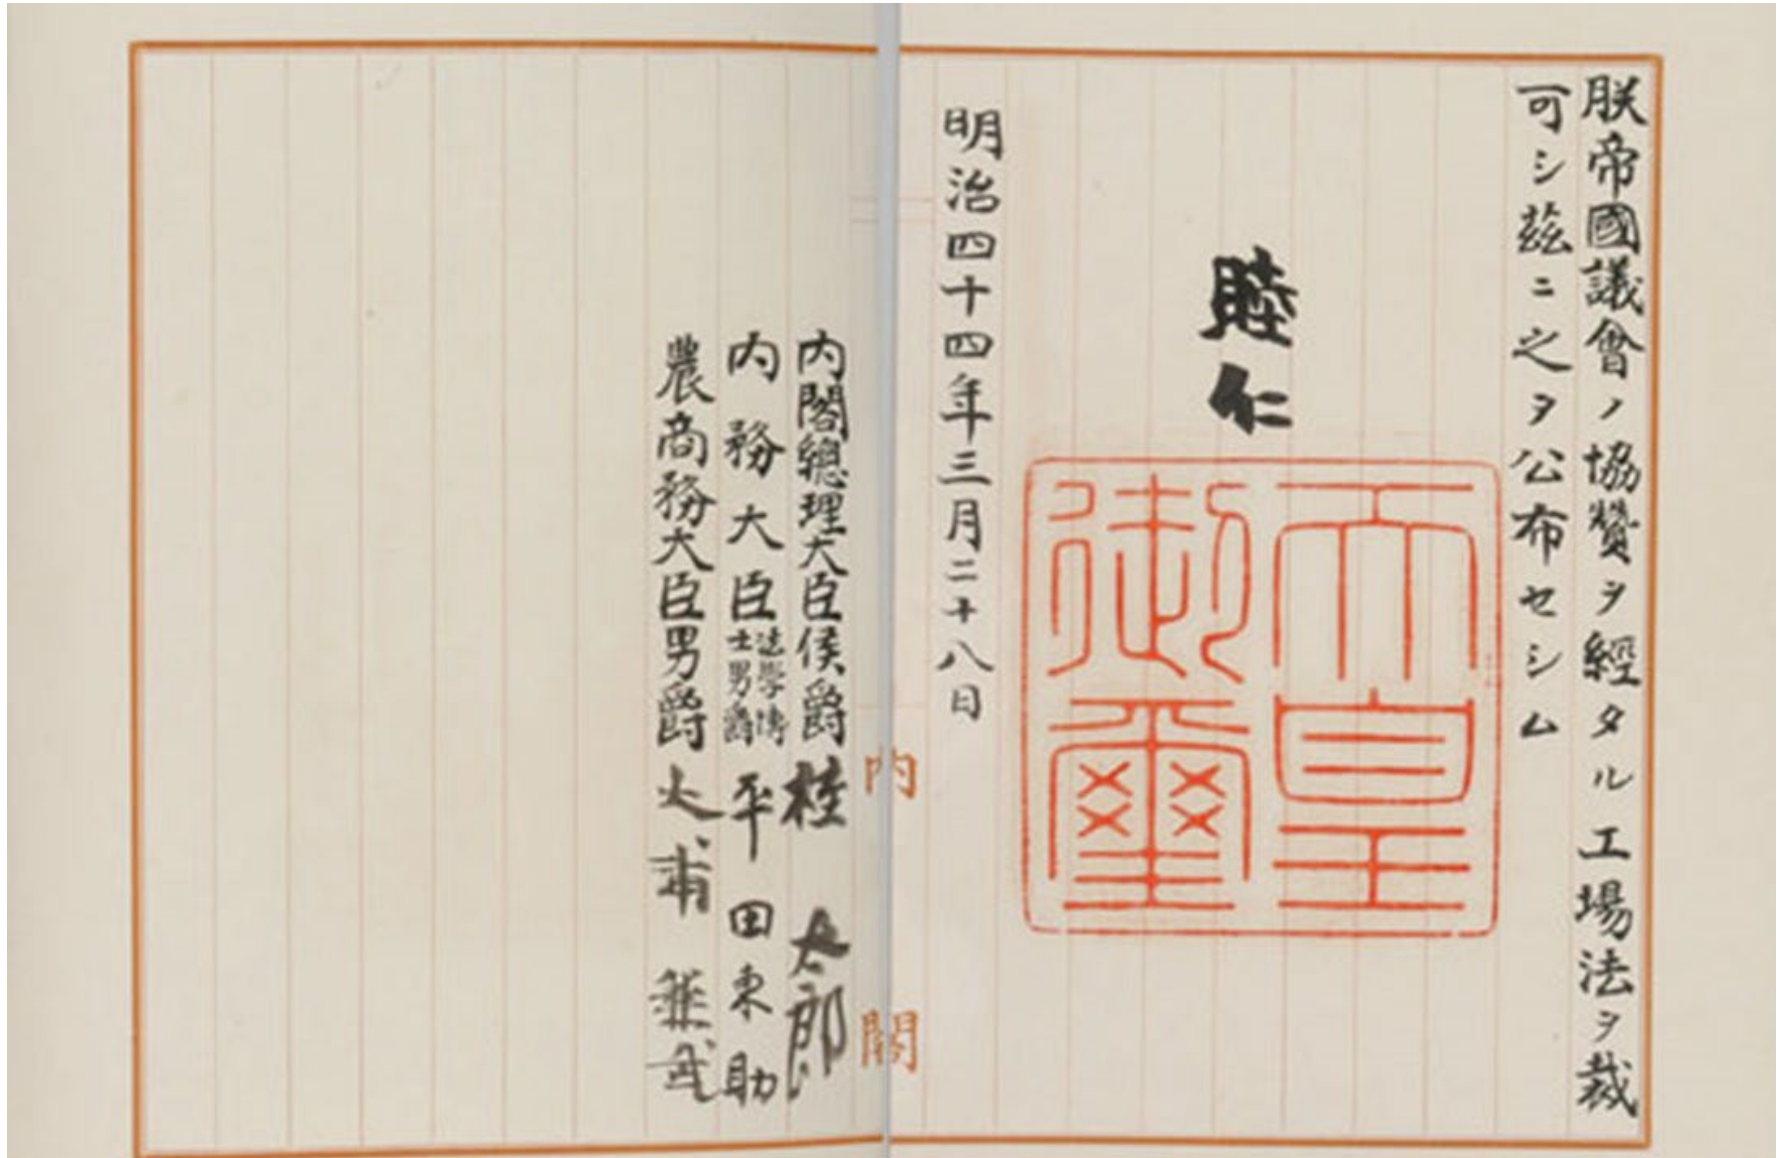 朕帝國議會ノ協贊ヲ經タル工場法ヲ裁
可シ茲ニ之ヲ公布セシム
睦仁
天皇
御璽
明治四十四年三月二十八日
内閣
内閣總理大臣侯爵桂太郎
内務大臣法學博士男爵平田東助
農商務大臣男爵大浦兼武